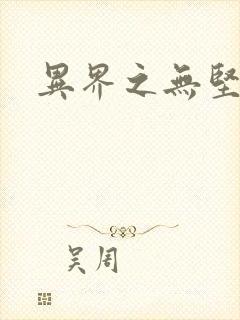 異界之無堅
吴周